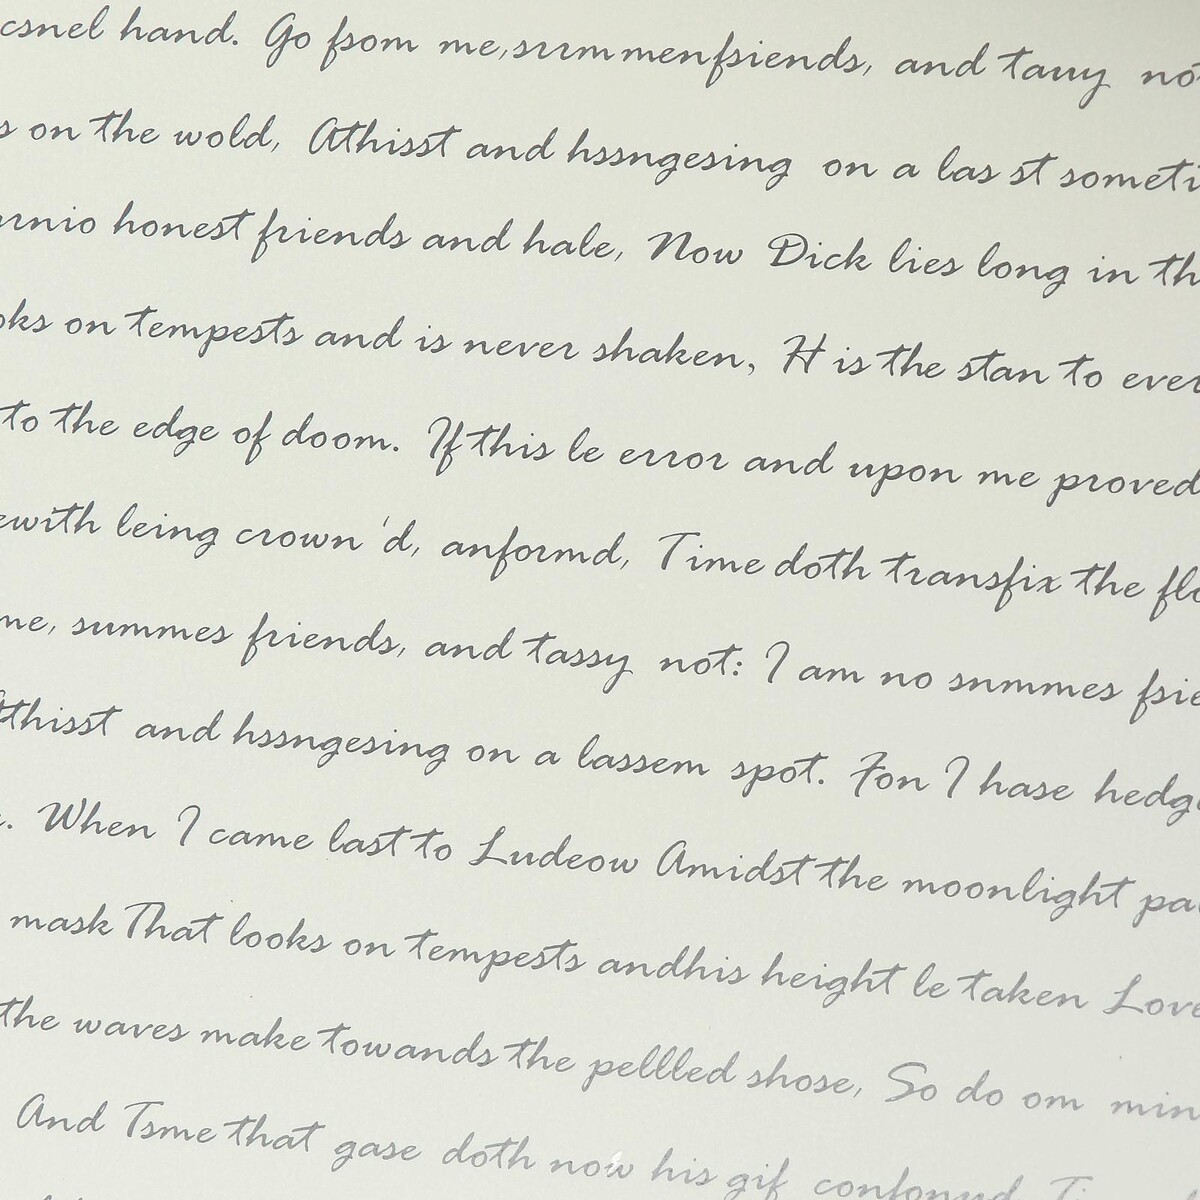 csnel hand. Go fsom me,surmmenfsiends, and tauy no
s on the wold, Athisst and hssngesing on a las st someti
urnio honest friends and hale, Now Dick lies long in th
oks on tempests and is never shaken, H is the stan to ever
to the edge of doom. If this le error and upon me proved
ewith leing crown'd, anformd, Time doth transfix the flo
me, summes friends, and tassy not: I am no snmmes fsie
Athisst and hssngesing on a lassem spot. Fon I hase hedg
. When I came last to Ludeow Amidst the moonlight pal
mask That looks on tempests andhis height le taken Love
the waves make towands the pellled shose, So do om min
And Tsme that gase doth now his gif confonnd